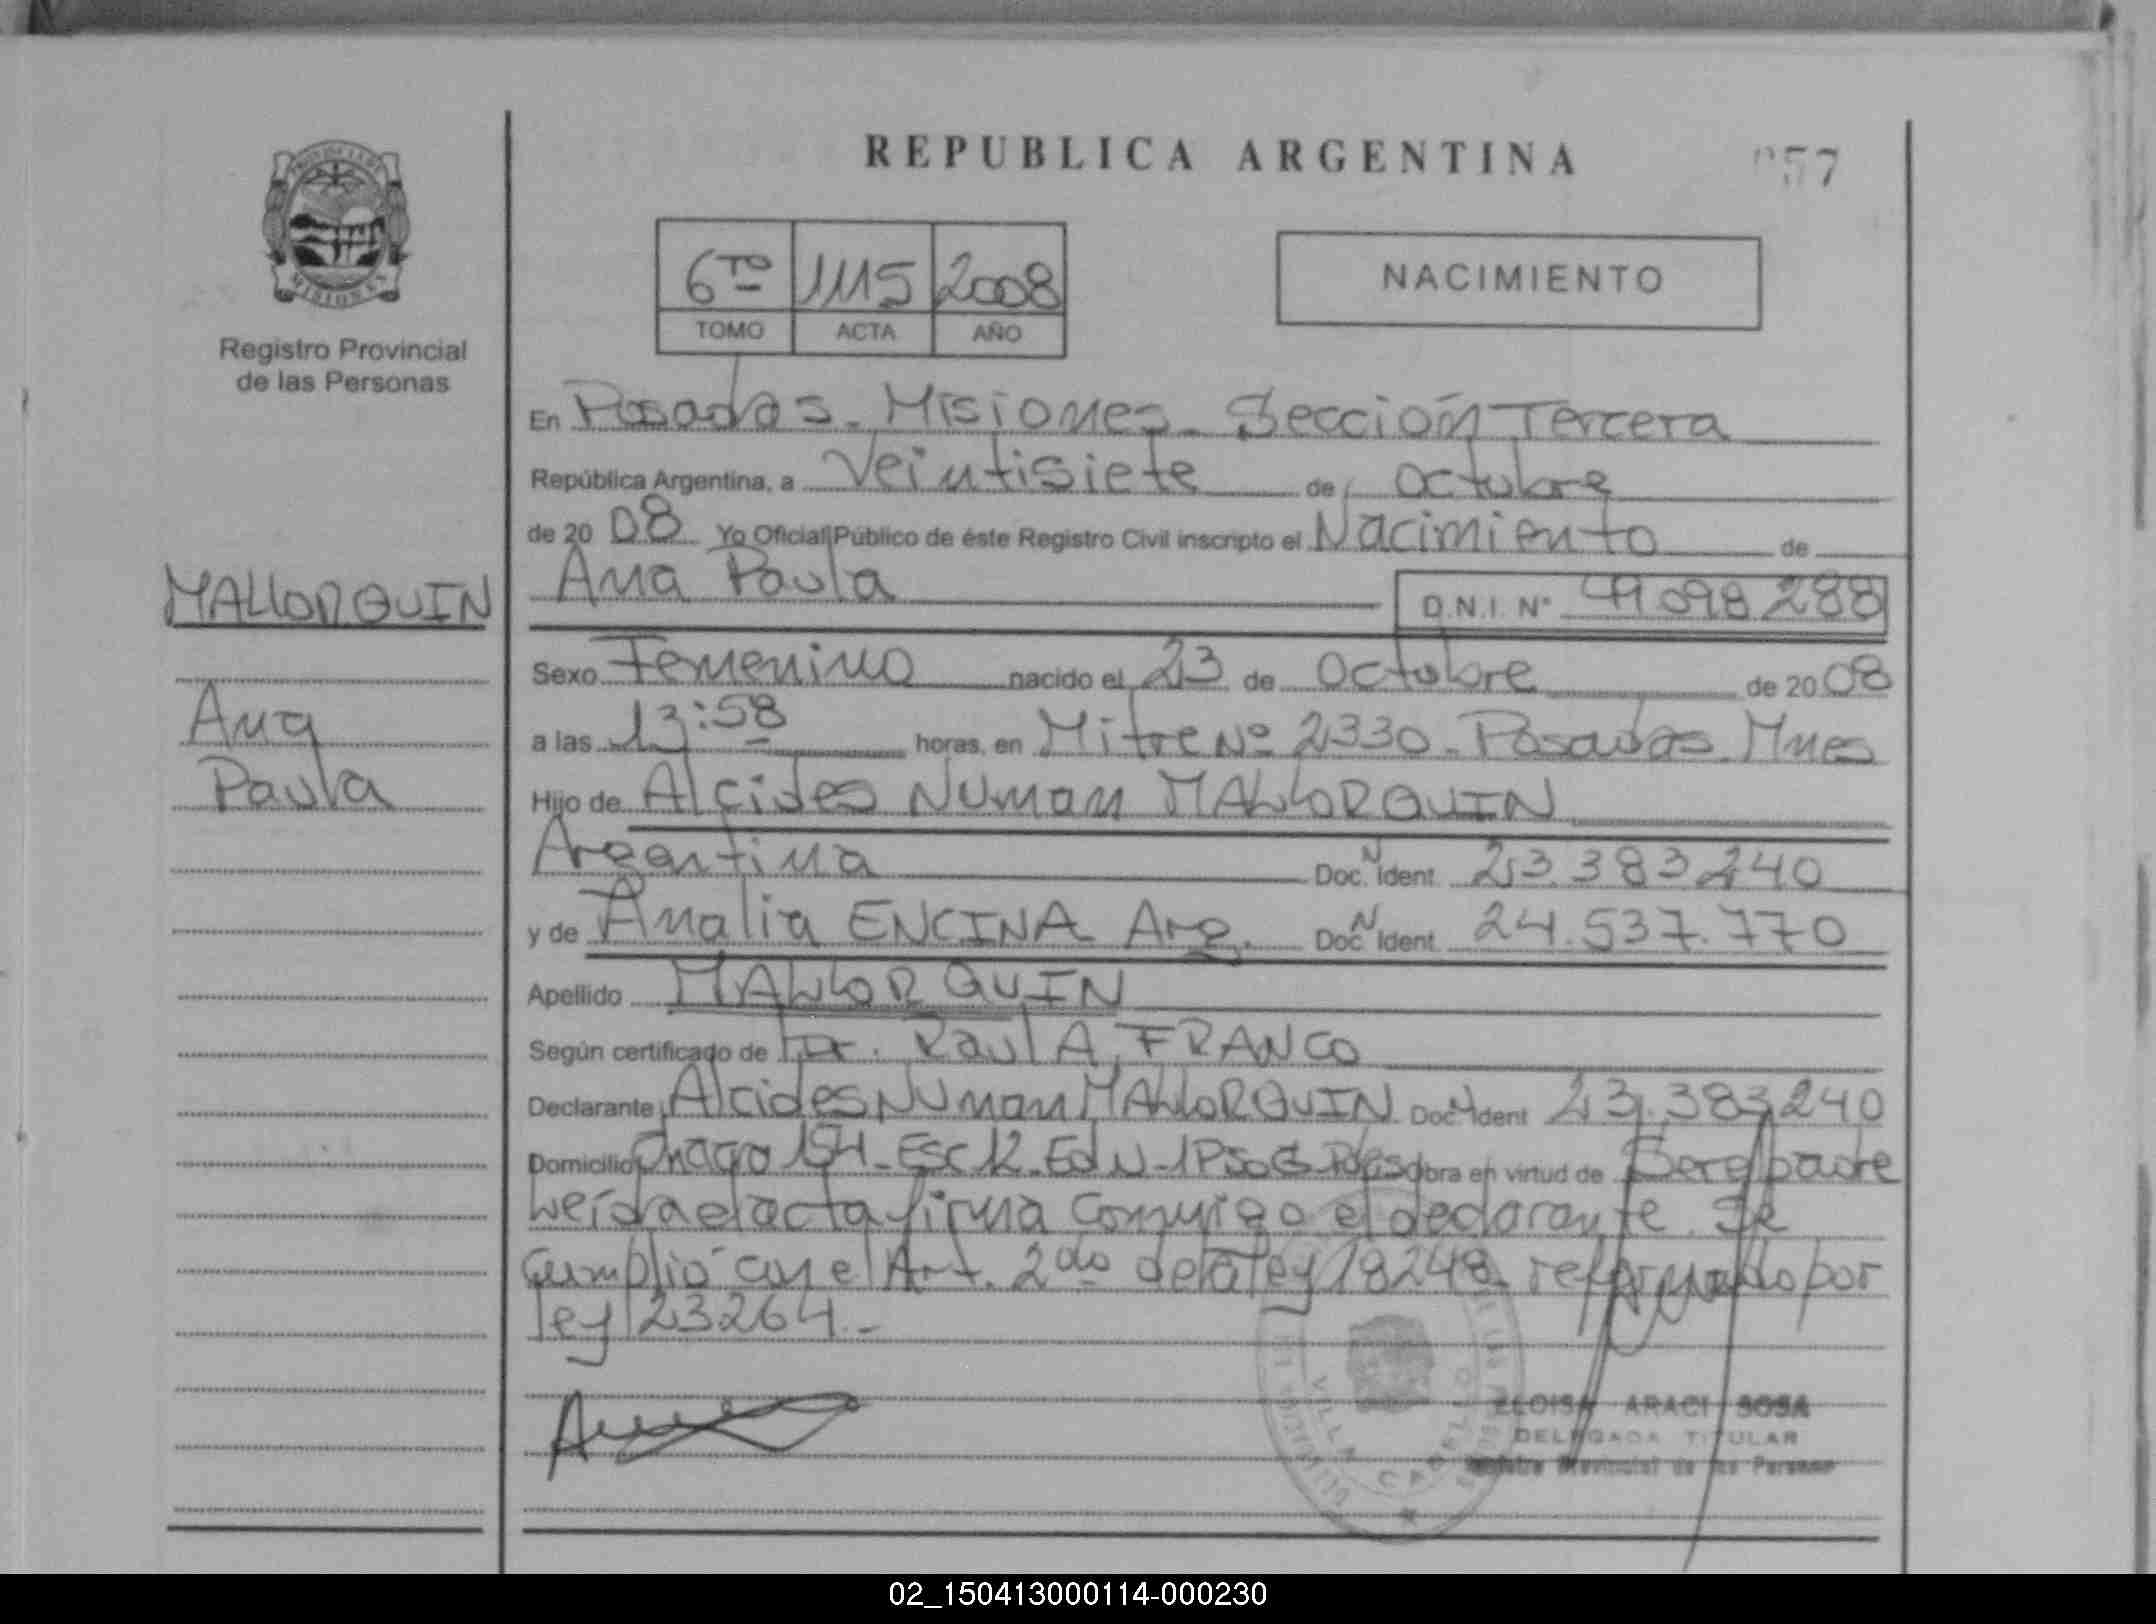 REPUBLICA ARGENTINA
57
PROVINCIA DE
MISIONES
Registro Provincial
de las Personas
6TO 1115 2008
TOMO ACTA AÑO
NACIMIENTO
En Posadas - Misiones - Sección Tercera
República Argentina, a Veintisiete de Octubre
de 20 08 Yo Oficial Público de éste Registro Civil inscripto el Nacimiento de
MALLORQUIN
Ana Paula D.N.I. N° 49 098 288
Sexo Femenino nacido el 23 de Octubre de 20 08
Ana
Paula
a las 13:58 horas, en Mitre Nº 2330 - Posadas - Mnes
Hijo de Alcides Numan MALLORQUIN
Argentina Doc. N Ident. 23.383.240
y de Analia ENCINA Arg. Doc. N Ident. 24.537.770
Apellido MALLORQUIN
Según certificado de Dr. Raul A. FRANCO
Declarante Alcides Numan MALLORQUIN Doc. N Ident 23.383.240
Domicilio 154 - Esc 12 - Ed N - 1P Obra en virtud de Ser el padre
Leída el acta firma conmigo el declarante. Se
cumplió con el Art. 2do de la ley 18248 reformado por
ley 23264.-
VILLA CABELLO
ELOISA ARACI SOSA
DELEGADA TITULAR
Registro Provincial de las Personas
02_150413000114-000230